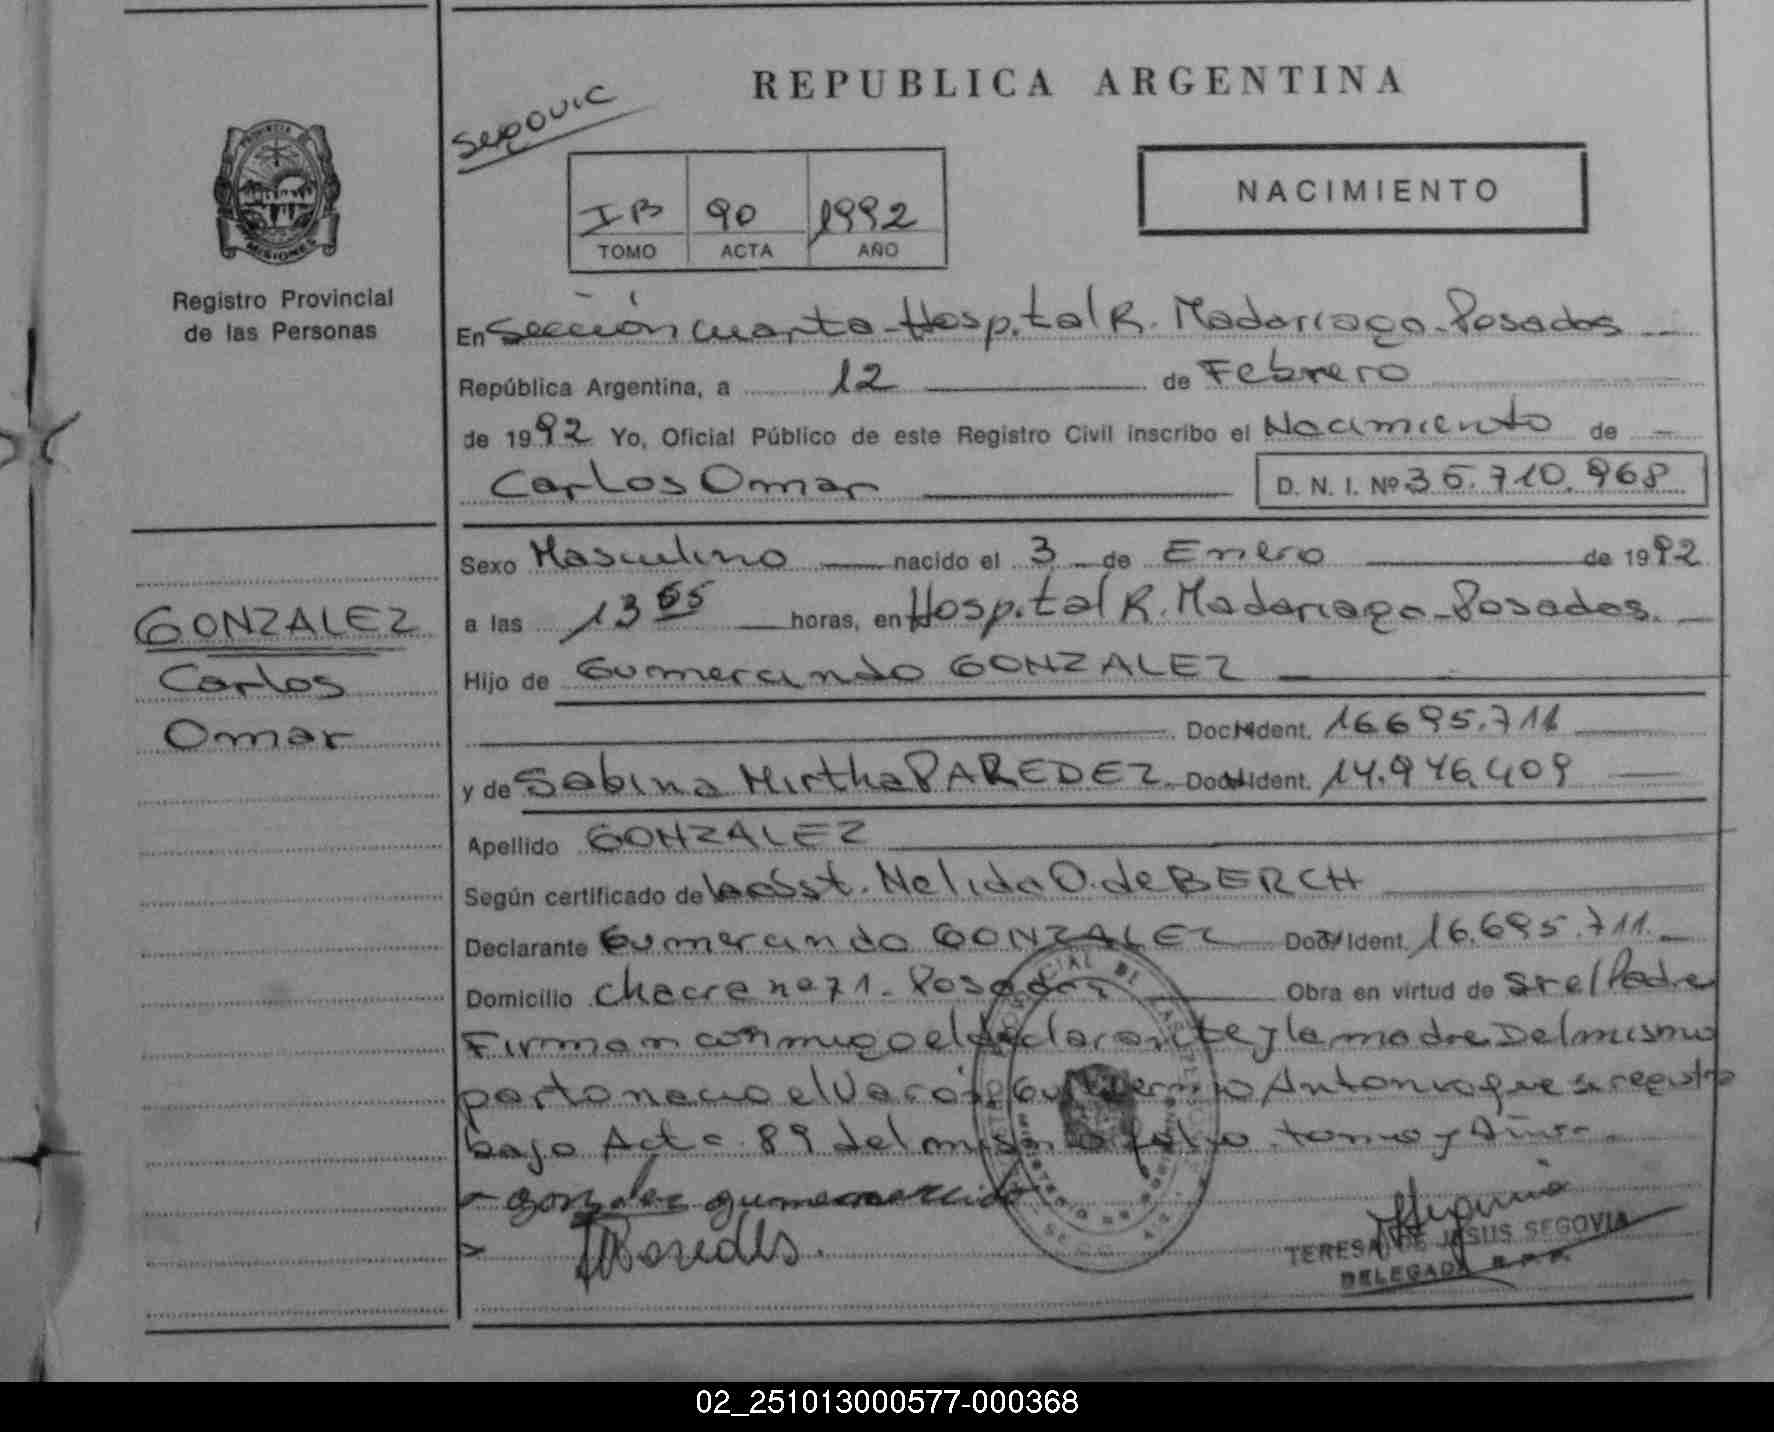 REPUBLICA ARGENTINA
Segovia
NACIMIENTO
IB 90 1992
TOMO ACTA AÑO
PROVINCIA DE MISIONES
Registro Provincial
de las Personas
En Sección cuarta - Hospital R. Madariaga - Posadas
República Argentina, a 12 de Febrero
de 1992 Yo, Oficial Público de este Registro Civil inscribo el Nacimiento de
Carlos Omar D. N. I. Nº 36.710.968
Sexo Masculino nacido el 3 de Enero de 1992
a las 13 horas, en Hospital R. Madariaga - Posadas.
Hijo de Gumercindo GONZALEZ
Doc. Ident. 16.695.711
y de Sabina Mirtha PAREDEZ Doc. Ident. 14.946.409
Apellido GONZALEZ
Según certificado de la obst. Nelida O. de BERCH
Declarante Gumercindo GONZALEZ Doc. Ident. 16.695.711.
Domicilio Chacra nº 71 - Posadas Obra en virtud de ser el Padre
Firman conmigo el declarante y la madre Del mismo
parto nacio el Varón Guillermo Antonio que se registro
bajo Acta 89 del mismo folio tomo y Año
gonzalez gumercindo
Paredes.
TERESA DE JESUS SEGOVIA
DELEGADA R.P.P.
GONZALEZ
Carlos
Omar
02_251013000577-000368